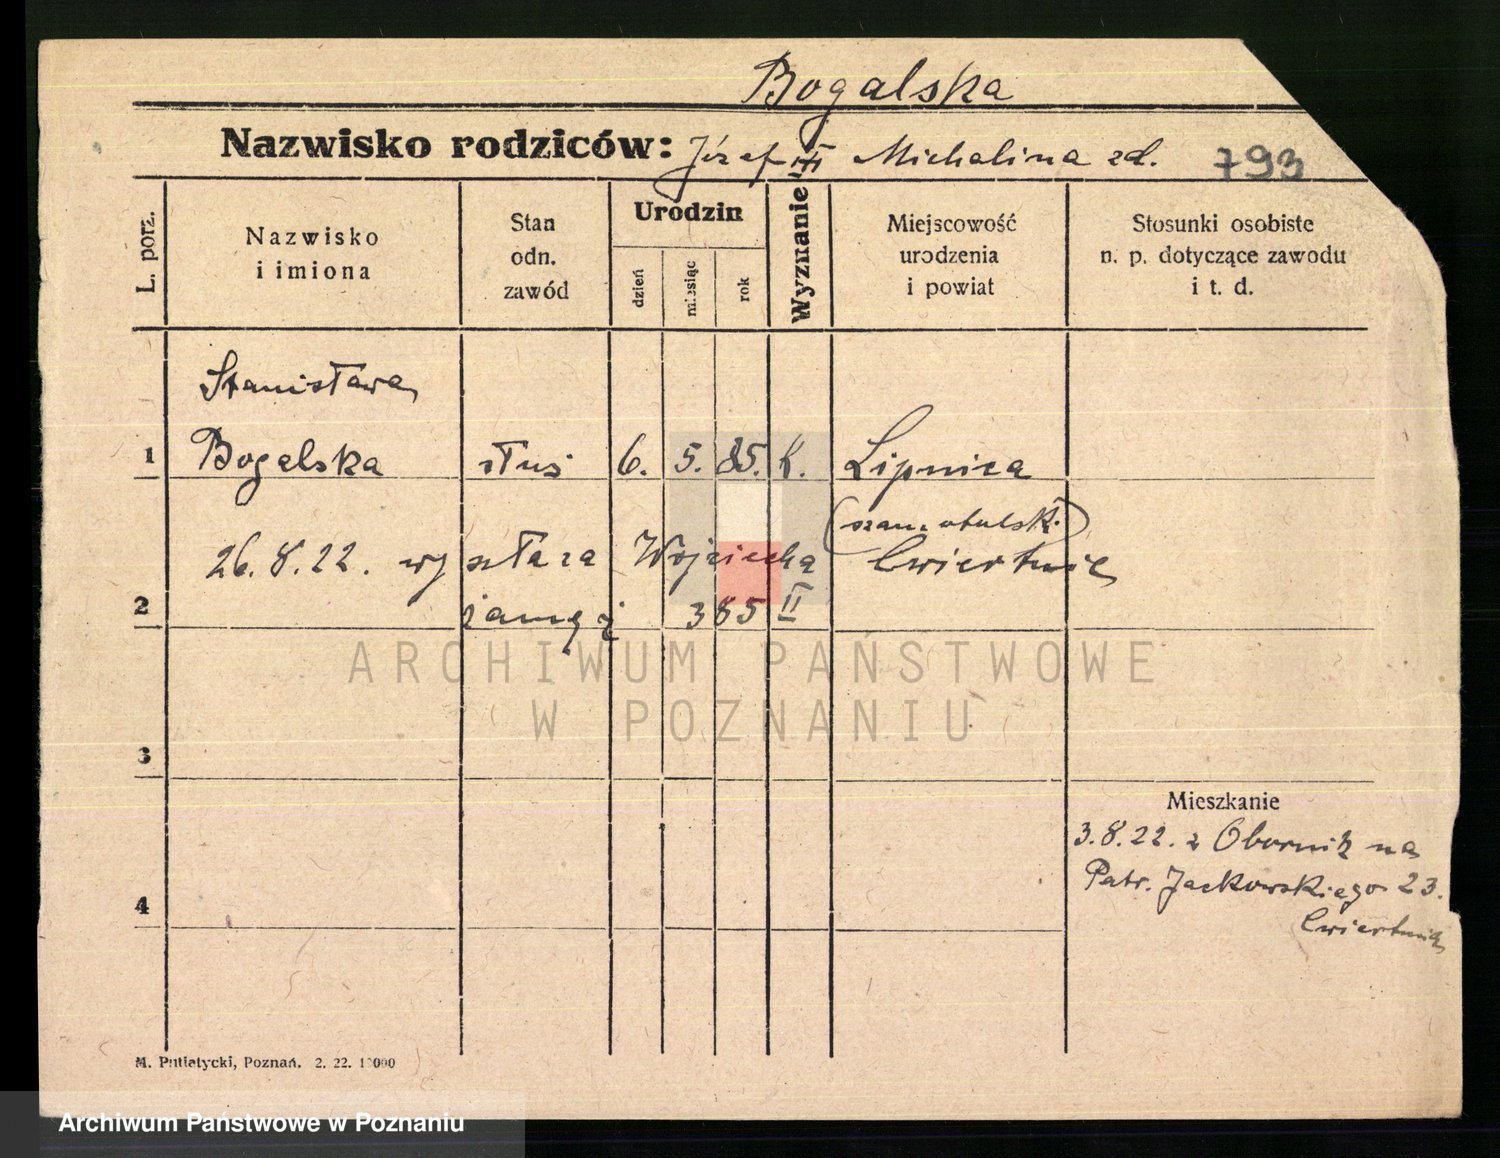 Bogalska
Nazwisko rodziców: Józef Michalina zd. 793
L. porz.
Nazwisko i imiona
Stan odn. zawód
Urodzin
dzień
miesiąc
rok
Wyznanie
Miejscowość urodzenia i powiat
Stosunki osobiste n. p. dotyczące zawodu i t. d.
Stanisława
1 Bogalska służ 6. 5. 85. k. Lipnica
(szamotulsk.)
26.8.22. Wojciecha Cwiertnia
2 385 II
ARCHIWUM PAŃSTWOWE
W POZNANIU
3
Mieszkanie
3.8.22. z Obornik na
Patr. Jackowskiego 23.
4 Cwiertnia
M. Putiatycki, Poznań. 2. 22. 10000
Archiwum Państwowe w Poznaniu